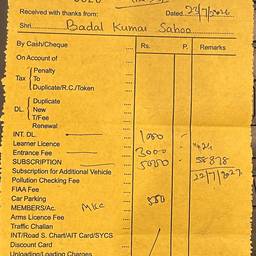 Received with thanks from: Dated 23/7/2026
Shri Badal Kumar Sahoo
By Cash/Cheque Rs. P. Remarks
On Account of
Penalty
Tax To
Duplicate/R.C./Token
Duplicate
DL. New
T/Fee
Renewal
INT. DL.
Learner Licence 1000 -
Entrance Fee 3000 -
SUBSCRIPTION 5000 - 58878
Subscription for Additional Vehicle 22/7/2027
Pollution Checking Fee
FIAA Fee
Car Parking 550
MEMBERS/Ac.
Arms Licence Fee
Traffic Challan
INT/Road S. Chart/AIT Card/SYCS
Discount Card
Uploading/Loading Charges